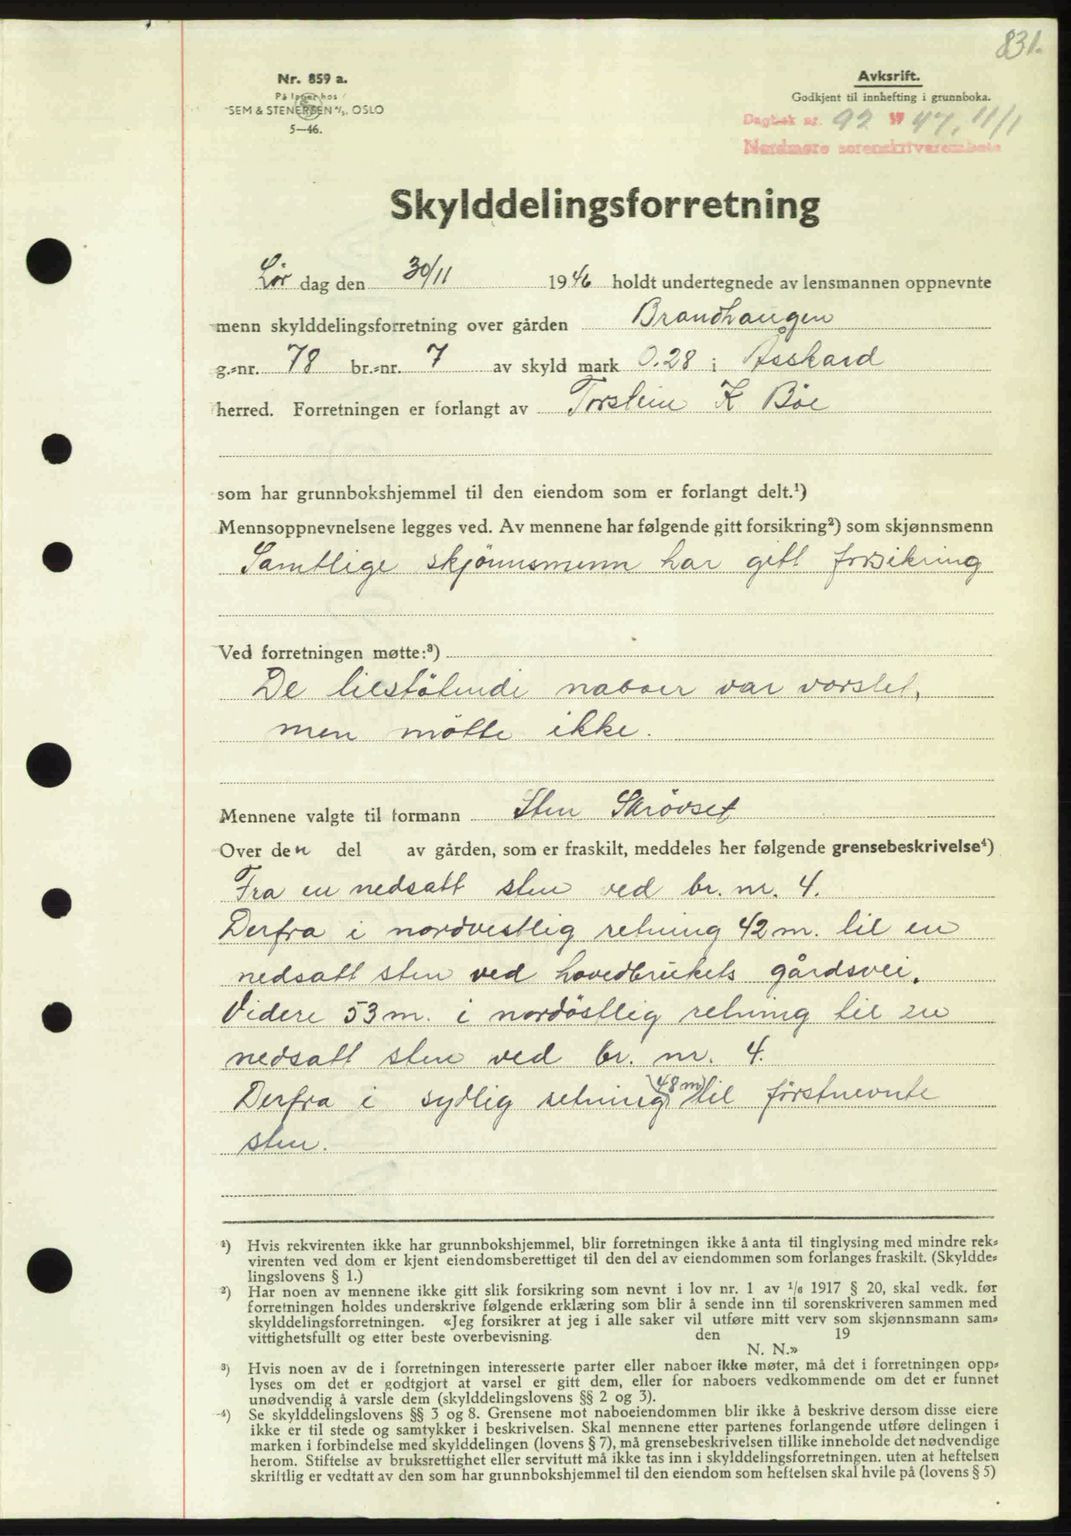 831.
Nr. 859 a.
På lager hos
SEM & STENERSEN A/S, OSLO
5—46.
Avskrift.
Godkjent til innhefting i grunnboka.
Dagbok nr. 92 19 47, 11/1
Nordmøre sorenskriverembete
Skylddelingsforretning
Lør dag den 30/11 1946 holdt undertegnede av lensmannen oppnevnte
menn skylddelingsforretning over gården Brandhaugen
g.=nr. 78 br.=nr. 7 av skyld mark 0.28 i Åsskard
herred. Forretningen er forlangt av Torstein K Böe
som har grunnbokshjemmel til den eiendom som er forlangt delt.¹)
Mennsoppnevnelsene legges ved. Av mennene har følgende gitt forsikring²) som skjønnsmenn
Samtlige skjönnsmenn har gitt forsikring
Ved forretningen møtte:³)
De tilstötende naboer var varslet,
men mötte ikke.
Mennene valgte til formann Sten Skrövset
Over den del av gården, som er fraskilt, meddeles her følgende grensebeskrivelse⁴)
Fra en nedsatt sten ved br. nr. 4.
Derfra i nordvestlig retning 42 m. til en
nedsatt sten ved hovedbrukets gårdsvei.
Videre 53 m. i nordöstlig retning til en
nedsatt sten ved br. nr. 4.
Derfra i sydlig retning (48 m) til förstnevnte
sten.
¹) Hvis rekvirenten ikke har grunnbokshjemmel, blir forretningen ikke å anta til tinglysing med mindre rek=
virenten ved dom er kjent eiendomsberettiget til den del av eiendommen som forlanges fraskilt. (Skyldde=
lingslovens § 1.)
²) Har noen av mennene ikke gitt slik forsikring som nevnt i lov nr. 1 av 1/6 1917 § 20, skal vedk. før
forretningen holdes underskrive følgende erklæring som blir å sende inn til sorenskriveren sammen med
skylddelingsforretningen. «Jeg forsikrer at jeg i alle saker vil utføre mitt verv som skjønnsmann sam=
vittighetsfullt og etter beste overbevisning. den 19
N. N.»
³) Hvis noen av de i forretningen interesserte parter eller naboer ikke møter, må det i forretningen opp=
lyses om det er godtgjort at varsel er gitt dem, eller for naboers vedkommende om det er funnet
unødvendig å varsle dem (skylddelingslovens §§ 2 og 3).
⁴) Se skylddelingslovens §§ 3 og 8. Grensene mot naboeiendommen blir ikke å beskrive dersom disse eiere
ikke er til stede og samtykker i beskrivelsen. Skal mennene etter partenes forlangende utføre delingen i
marken i forbindelse med skylddelingen (lovens § 7), må grensebeskrivelsen tillike inneholde det nødvendige
herom. Stiftelse av bruksrettighet eller servitutt må ikke tas inn i skylddelingsforretningen. uten at heftelsen
skriftlig er vedtatt av den som har grunnbokshjemmel til den eiendom som heftelsen skal hvile på (lovens § 5)